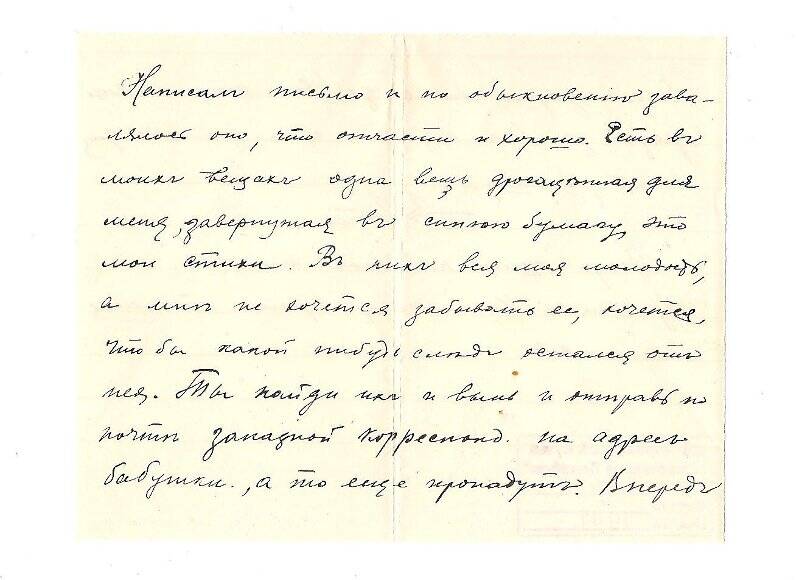 Написалъ письмо и по обыкновенію зава-
лялось оно, что отчасти и хорошо. Есть въ
моихъ вещахъ одна вещь драгоцѣнная для
меня, завернутая въ синюю бумагу, это
мои стихи. Въ нихъ вся моя молодость,
а мнѣ не хочется забывать ее, хочется,
что бы какой нибудь слѣдъ остался отъ
нея. Ты найди ихъ и вынь и отправь по
почтѣ заказной корреспонд. на адресъ
бабушки, а то еще пропадутъ. Впередъ